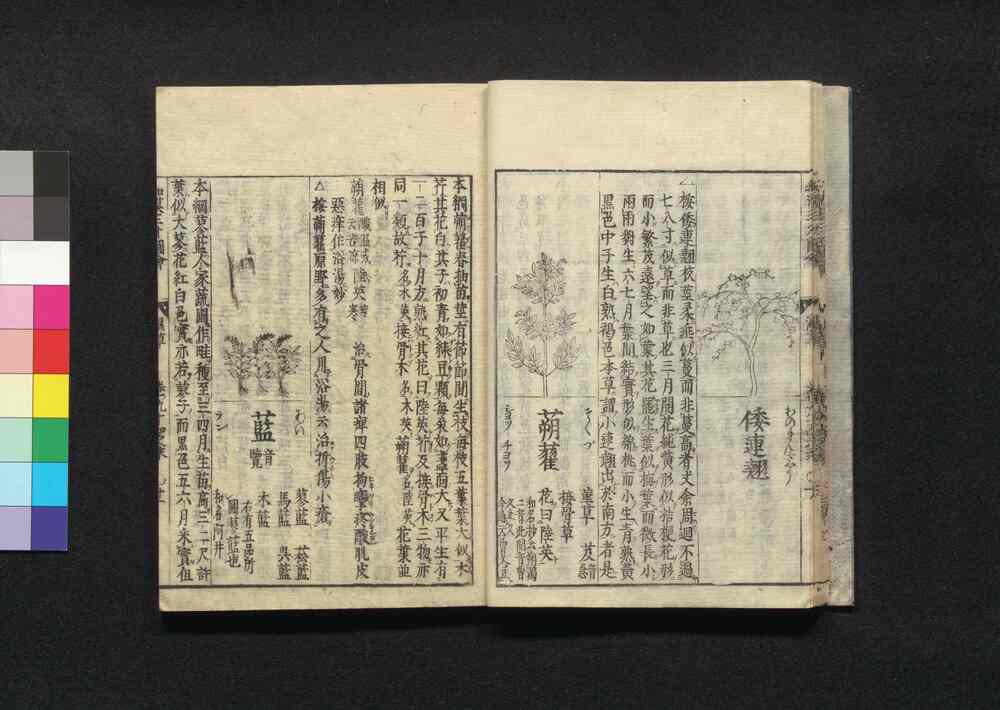 倭連翹
△按倭連翹枝莖柔靡似蔓而非蔓高者丈余周迴不過
七八寸似草而非草也三月開花純黄形似桔梗花形
而小繁茂遠望之如葉其花罷生葉似梅葉而微長小
兩兩對生六七月葉間結實形似龜桃而小生青熟黄
黒色中子生白熟褐色本草謂小連翹出於南方者是
蒴藋
菫草 芨音急
接骨草
花曰陸英
本綱蒴藋春抽苗莖有節節間生枝每枝五葉葉大似水
芹其花白其子初青如緑豆顆每朶如盞面大又平生有
一二百子十月方熟紅其花曰陸英蒴及接骨木三物亦
同一類故芹名水英接骨木名木英蒴藋名陸英花葉並
相似
蒴藋 治骨間諸痺四肢拘攣疼酸風皮
惡痒作浴湯妙
△按蒴藋原野多有之人用浴湯云治折傷小瘡
藍 音覽
わい
ラン
蓼藍 菘藍
馬藍 呉藍
木藍
右有五品所
圖蓼藍也
本綱蓼藍人家蔬圃作畦種至三四月生苗高三二尺許
葉似大蓼花紅白色實亦若蓼子而黒色五六月采實但